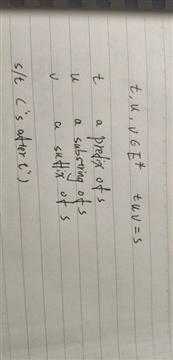 t, u, v ∈ Σ* tuv = s
t a prefix of s
u a substring of s
v a suffix of s
s/t ("s after t")